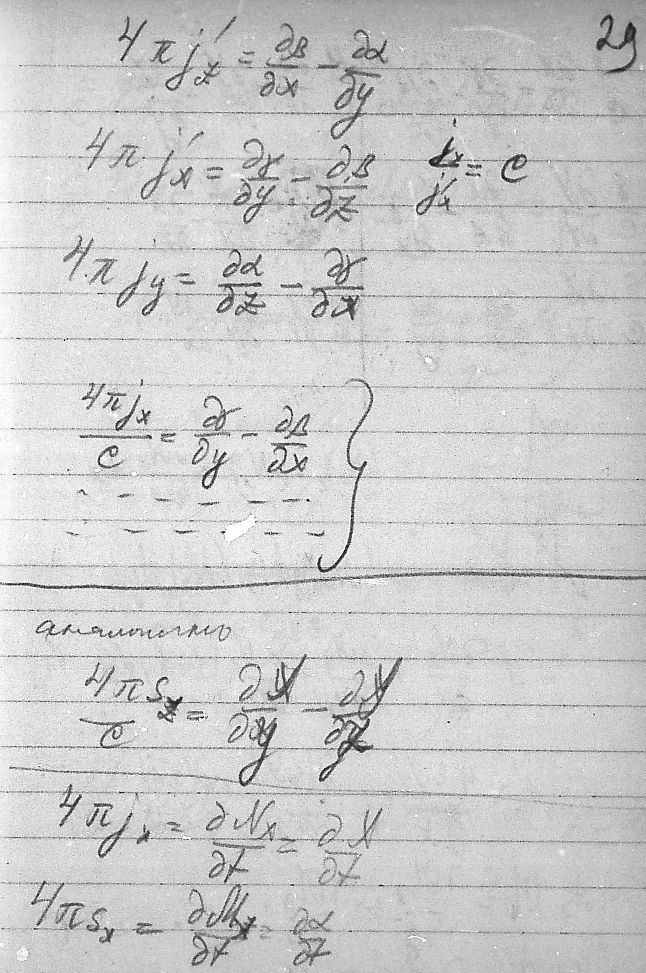 29
4πj′z = ∂β/∂x − ∂α/∂y
4π j′x = ∂γ/∂y − ∂β/∂z jx/j′x = c
4π jy = ∂α/∂z − ∂γ/∂x
4πjx/c = ∂γ/∂y − ∂β/∂x
аналогично
4πjx = ∂Nx/∂t = ∂X/∂t
4πsx = ∂Mx/∂t = ∂α/∂t